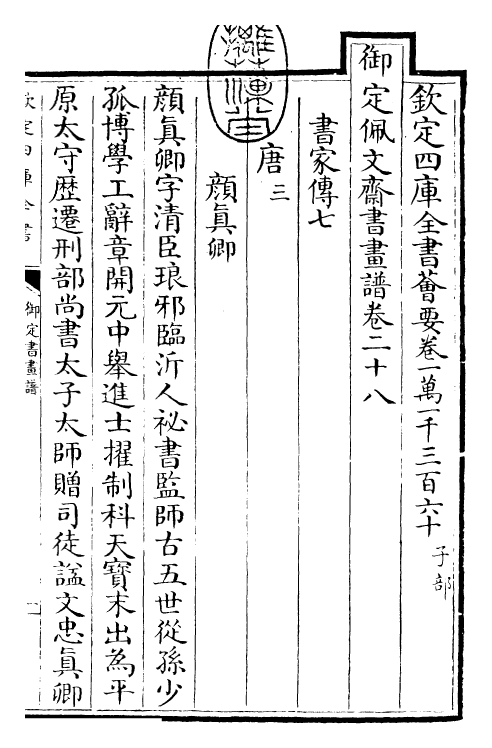 欽定四庫全書薈要卷一萬一千三百六十 子部
御定佩文齋書畫譜卷二十八
書家傳七
唐 三
顔眞卿
顔眞卿字清臣琅邪臨沂人祕書監師古五世從孫少
孤博學工辭章開元中舉進士擢制科天寶末出為平
原太守歴遷刑部尚書太子太師贈司徒謚文忠眞卿
欽定四庫全書
御定書畫譜